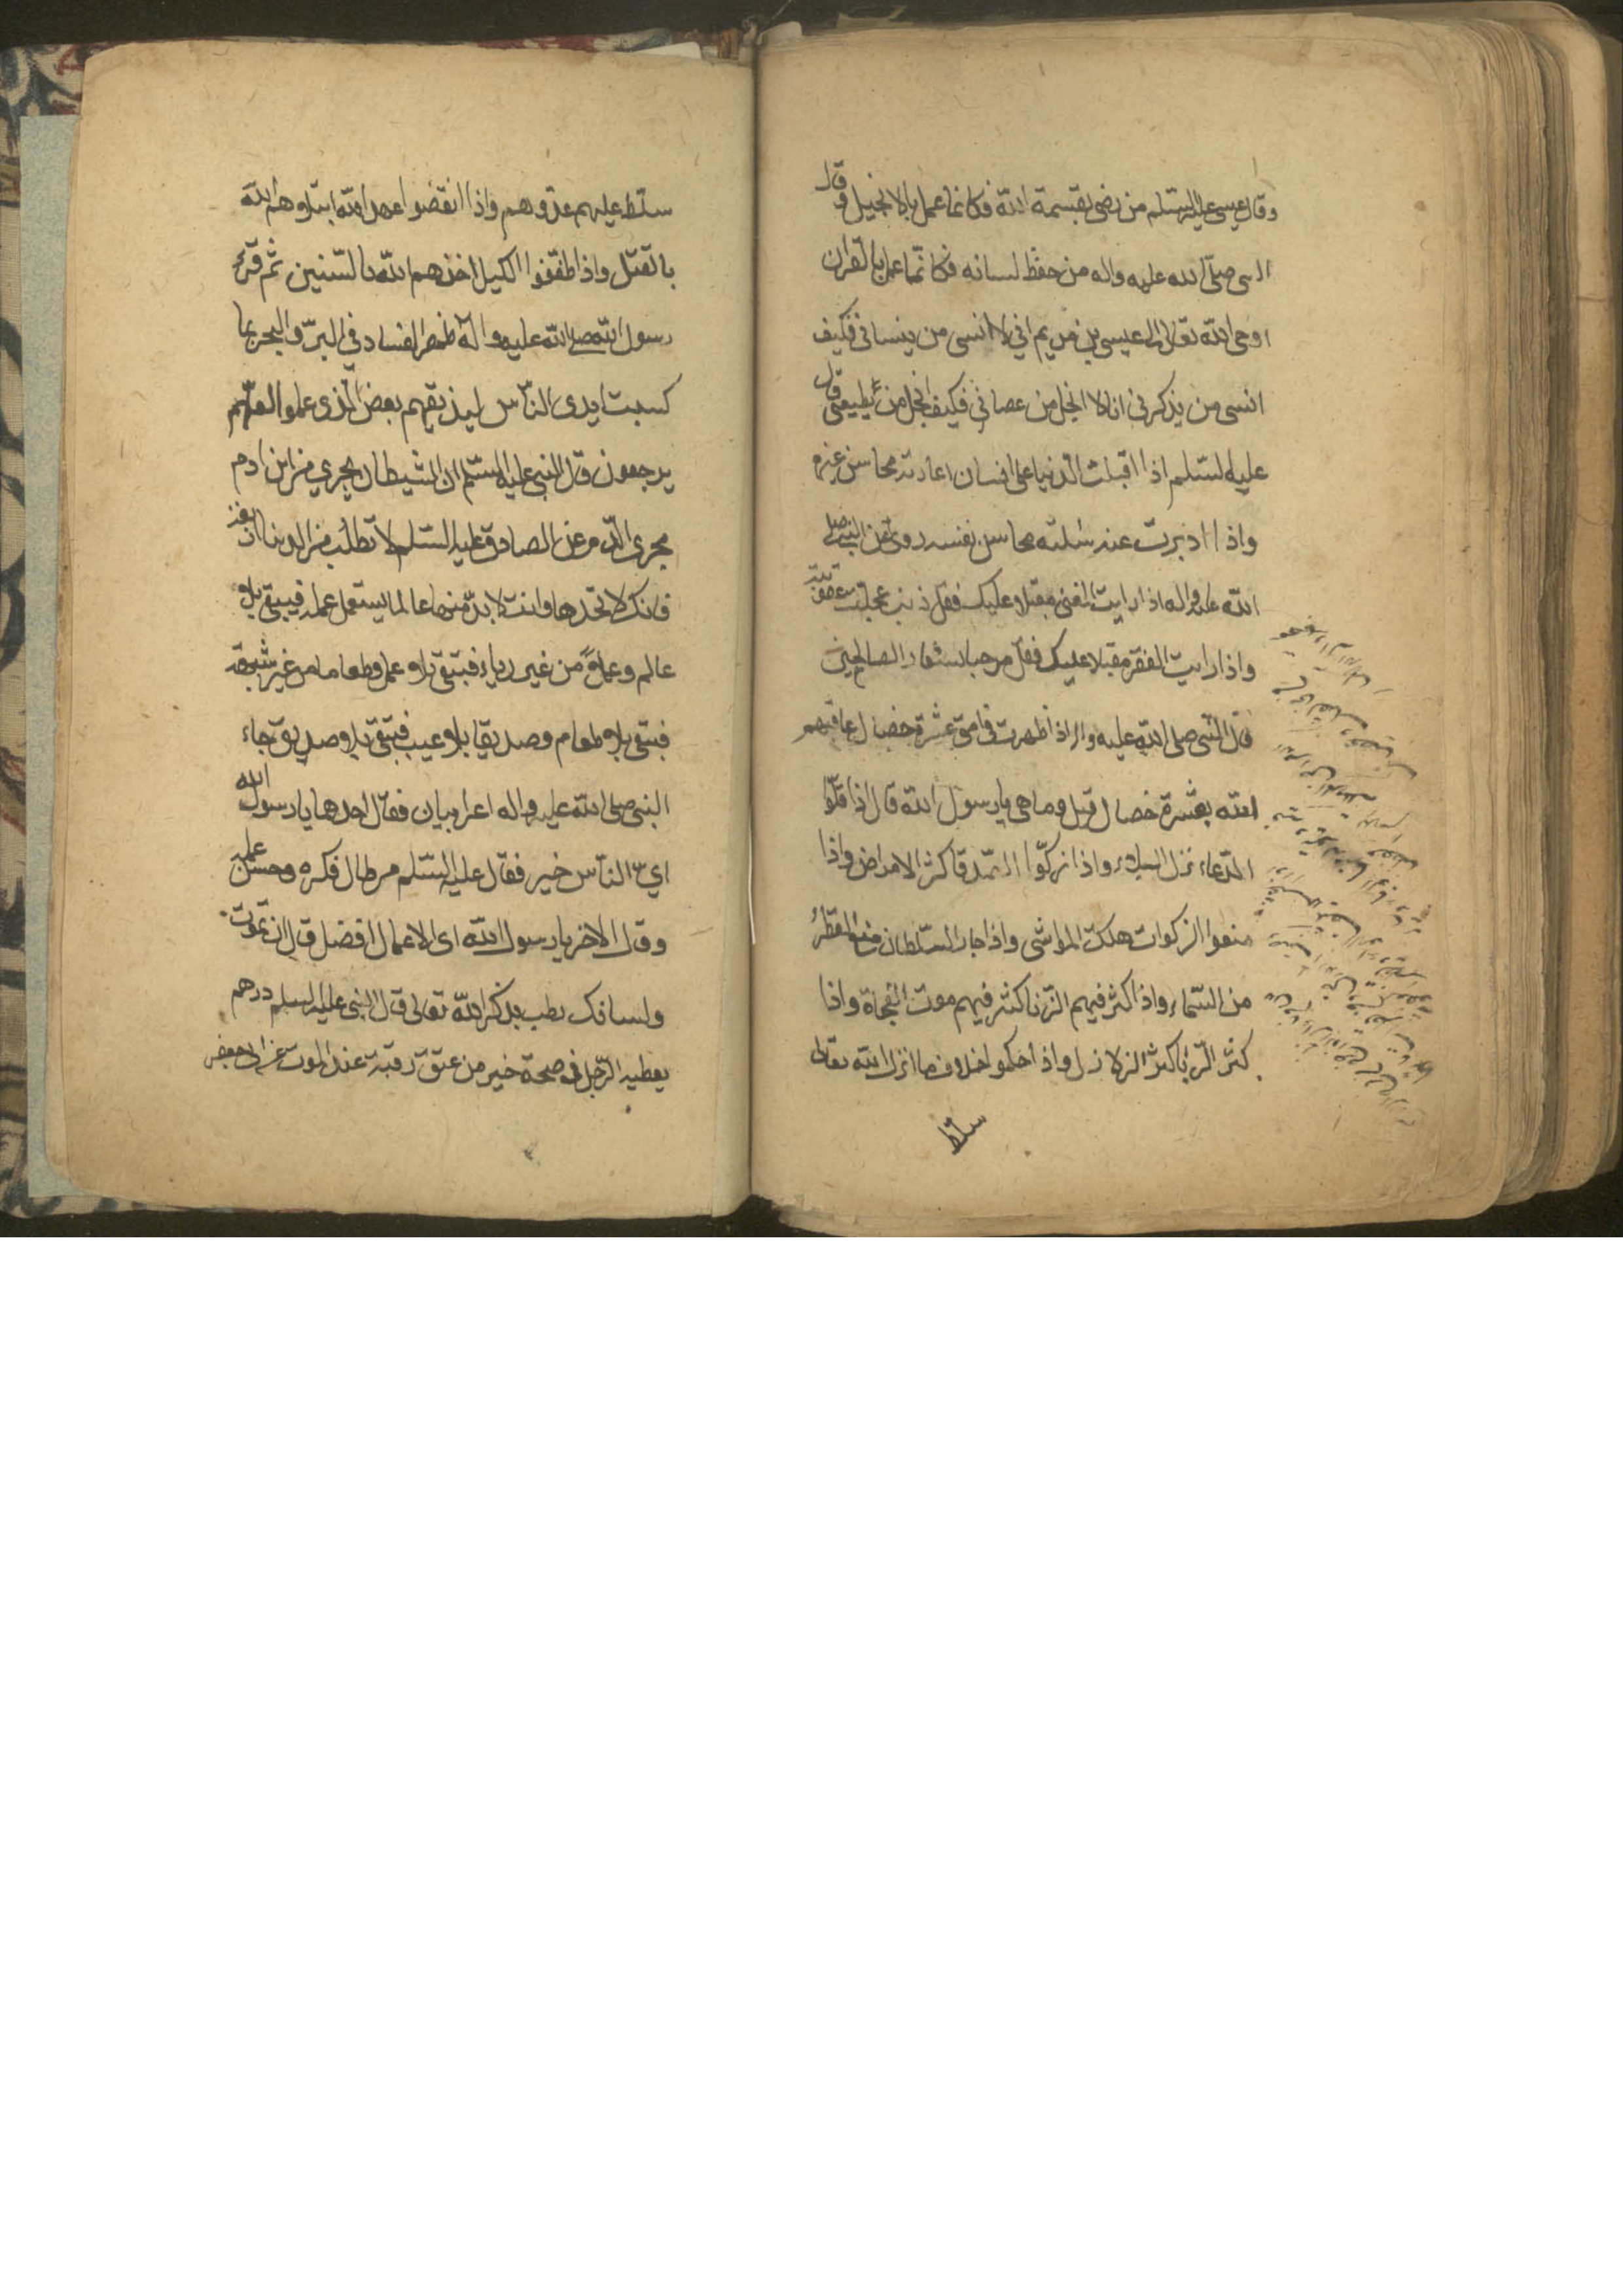 وقال عيسى عليه السّلم من رضى بقسمة الله فكانما عمل بالانجيل وقال
النبى صلّى الله عليه واله من حفظ لسانه فكانّما عمل بالقران
اوحى الله تعالى الى عيسى بن مريم انى لا انسى من ينسانى فكيف
انسى من يذكرنى انا لا ابخل من عصانى فكيف ابخل من يطيعنى قال
عليه السّلم اذا اقبلت الدّنيا على انسان اعارته محاسن غيره
واذا ادبرت عنه سلبته محاسن نفسه روى عن النبى صلى
الله عليه واله اذا رايت الغنى مقبلا عليك فقل ذنب عجلت عقوبته
واذا رايت الفقر مقبلا عليك فقل مرحبا بشعار الصالحين
قال النّبى صلى الله عليه واله اذا ظهرت فى امتى عشرة خصال عاقبهم
الله بعشرة خصال قيل وما هى يا رسول الله قال اذا قلّوا
الدّعاء نزل البلاء واذا تركوّا الصّدقا كثر الامراض واذا
منعوا الزكوات هلكت المواشى واذا جار السّلطان منع القطر
من السّماء واذا كثر فيهم الزّنا كثر فيهم موت الفجاة واذا
كثر الرّبا كثر الزلازل واذا حكموا خلاف ما انزل الله تعالى
سلط
سلّط عليهم عدوّهم واذا انقضوا عهد الله ابتلاهم الله
بالقتل واذا طفّفوا الكيل اخذهم الله بالسّنين ثم قرء
رسول الله صلى الله عليه واله ظهر الفساد فى البرّ والبحر بما
كسبت ايدى النّاس ليذيقهم بعض الّذى عملوا لعلّهم
يرجعون قال النبى عليه السّلم ان الشيطان يجرى من ابن ادم
مجرى الدّم عن الصادق عليه السّلم لا تطلب من الدنيا اربعة
فانك لا تجدها وانت لا بدّ منها عالما يستعمل علمه فيبقى بلا
عالم وعملا من غير رياء فبتقى بلا عمل وطعاما من غير شبهة
فبتقى بلا طعام وصديقا بلا عيب فبتقى بلا صديق جاء
النبى صلى الله عليه واله اعرابيان فقال احدهما يا رسول الله
اىّ النّاس خير فقال عليه السّلم من طال فكره وحسن عمله
وقال الاخر يا رسول الله اى الاعمال افضل قال ان تموت
ولسانك رطب بذكر الله تعالى قال النبى عليه السلم درهم
يعطيه الرّجل فى صحة خير من عتق رقبة عند الموت عن ابى جعفر